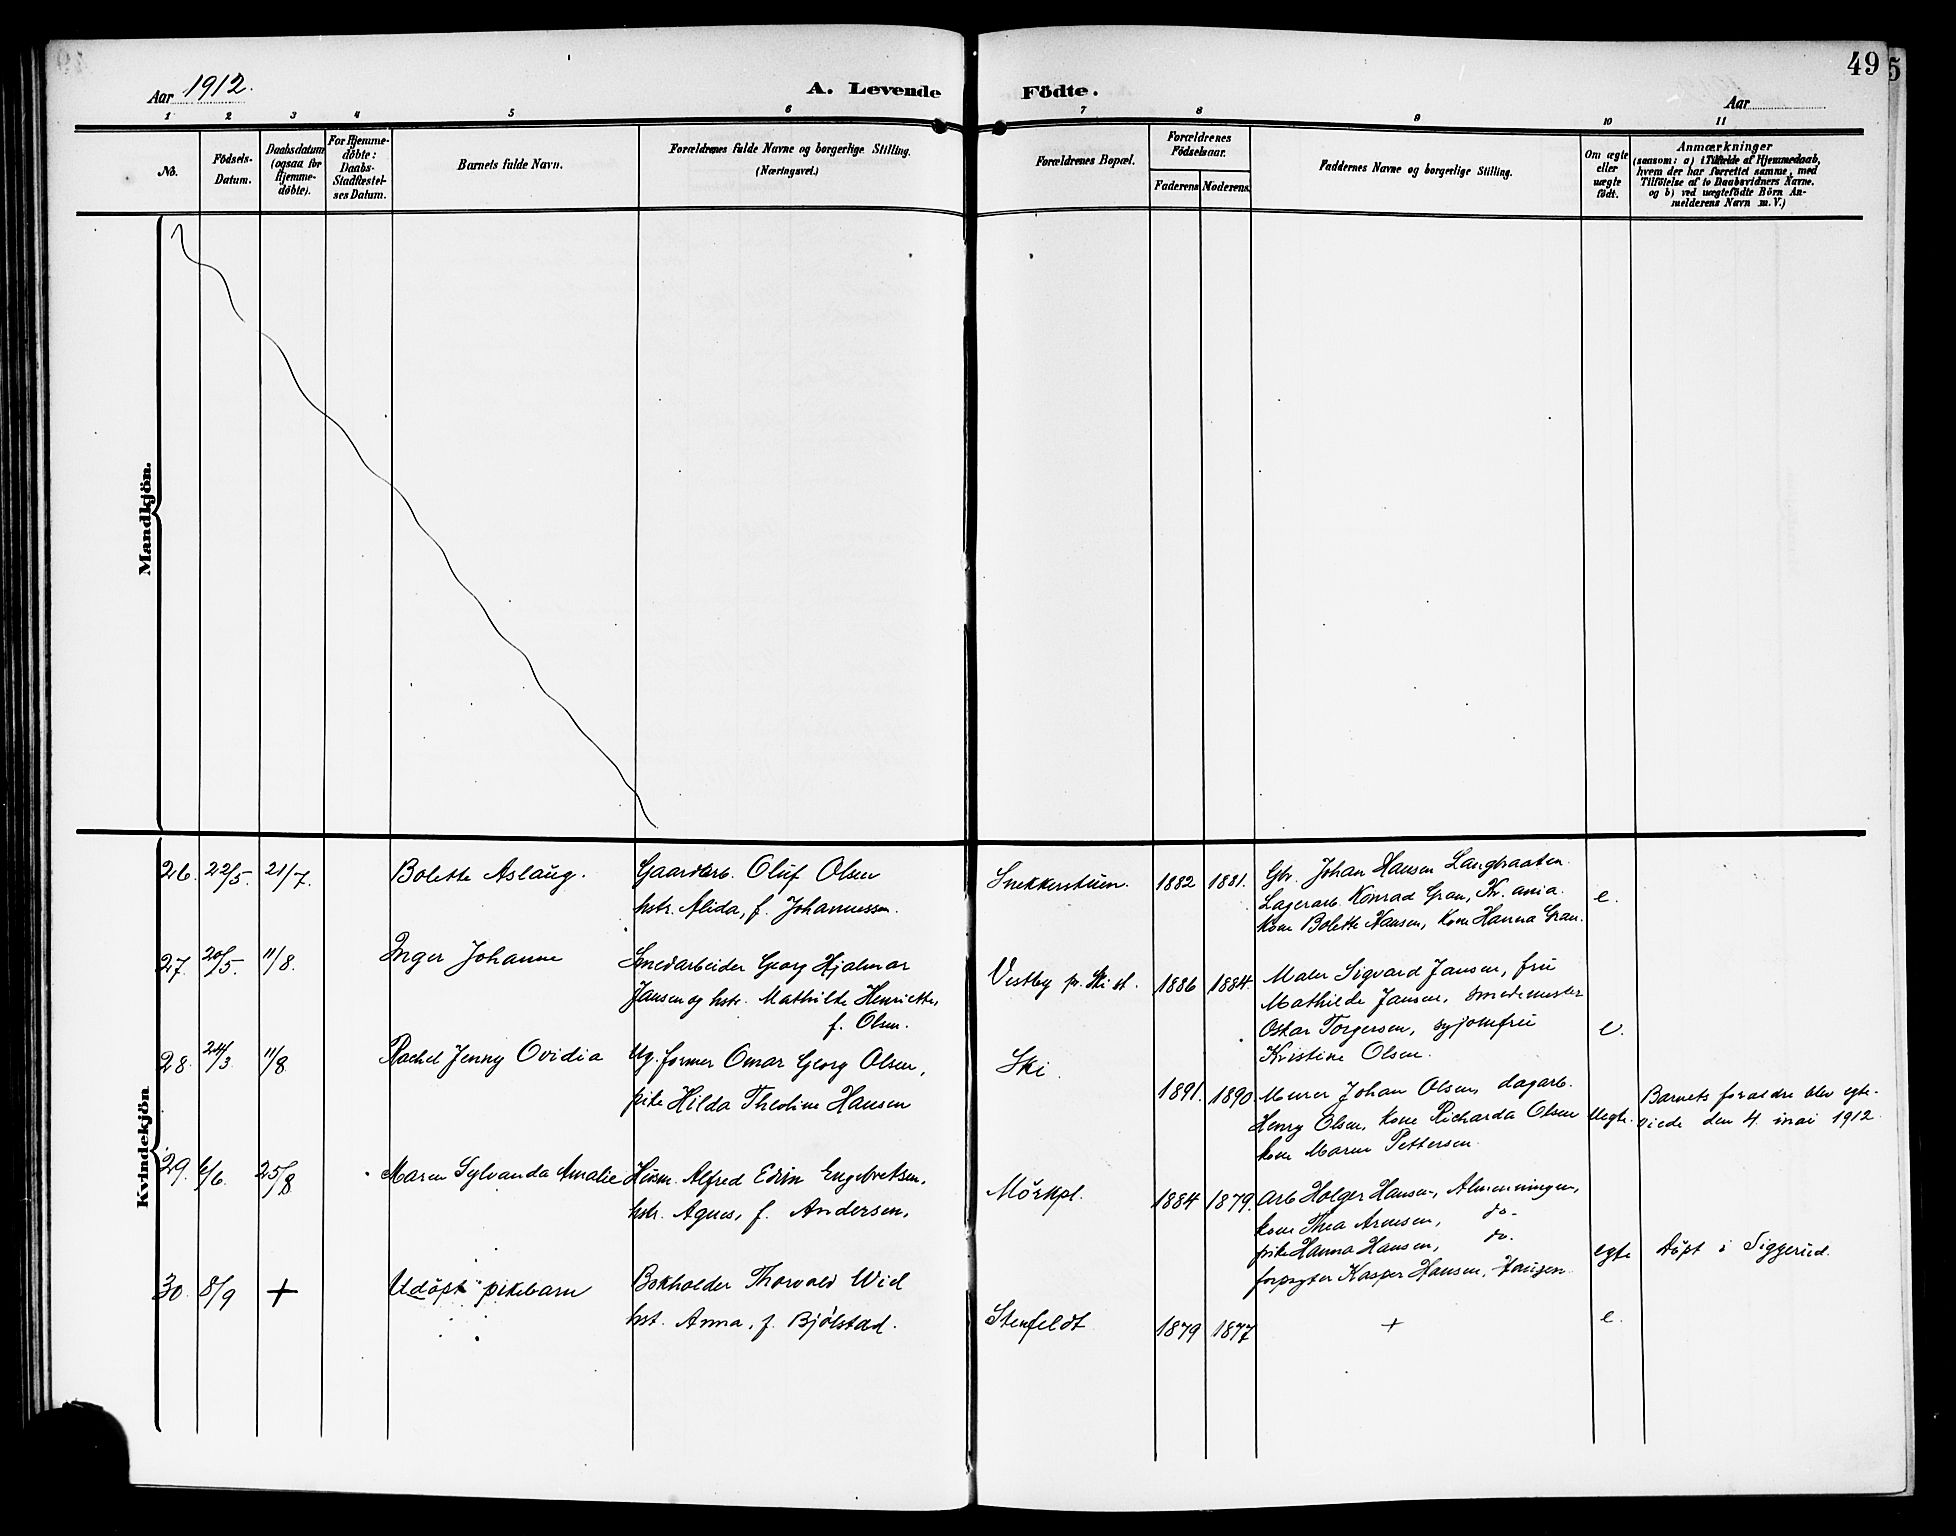 49
5
Aar 1912.
A. Levende Födte.
Aar
1 2 3 4 5 6 7 8 9 10 11
No.
Födsels-
Datum.
Daabsdatum
(ogsaa for
Hjemme-
döbte).
For Hjemme-
döbte:
Daabs-
Stadfæstel-
ses Datum.
Barnets fulde Navn.
Forældrenes fulde Navne og borgerlige Stilling.
(Næringsvei.)
Forældrenes Bopæl.
Forældrenes
Födselsaar.
Faderens
Moderens.
Faddernes Navne og borgerlige Stilling.
Om ægte
eller
uægte
födt.
Anmærkninger
(saasom: a) i Tilfælde af Hjemmedaab,
hvem der har forrettet samme, med
Tilföielse af to Daabsvidners Navne.
og b) ved uægtefödte Börn An-
melderens Navn m. V.)
Mandkjön.
Kvindekjön
26. 22/5. 21/7.
Bolette Aslaug.
Gaardarb. Oluf Olsen
hstr. Alida, f. Johannessen.
Snekkerstuen.
1882 1881.
Gbr. Johan Hansen Langbraaten.
Lagerarb. Konrad Gran, Kr.ania.
Kone Bolette Hansen, Kone Hanna Gran.
e.
27. 20/5. 11/8.
Inger Johanne
Smedarbeider Georg Hjalmar
Jansen og hstr. Mathilde Henriette,
f. Olsen.
Vestby pr. Ski st.
1886 1884.
Maler Sigvard Jansen, frü
Mathilde Jansen, smedemester
Oskar Torgersen, syjomfru
Kristine Olsen.
e.
28. 24/3 11/8
Rachel Jenny Ovidia
Ug. former Omar Georg Olsen,
pike Hilda Theoline Hansen
Ski.
1891. 1890.
Murer Johan Olsen, dagarb.
Henry Olsen, kone Richarda Olsen
kone Maren Pettersen.
Uegte.
Barnets foraldre blev egte-
viede den 4. mai 1912.
29. 6/6. 25/8
Maren Sylvanda Amalie
Husm. Alfred Edvin Engebretsen,
hstr. Agnes, f. Andersen,
Mörkpl.
1884 1879.
Arb Holger Hansen, Almenningen,
kone Thea Arnesen, do.
pike Hanna Hansen, do.
forpagter Kasper Hansen, Haugen
egte
Döpt i Siggerud.
30. 8/9 +
Udöpt pikebarn
Bokholder Thorvald Wid
hst. Anna, f. Bjölstad.
Stenfeldt
1879 1877
+
e.